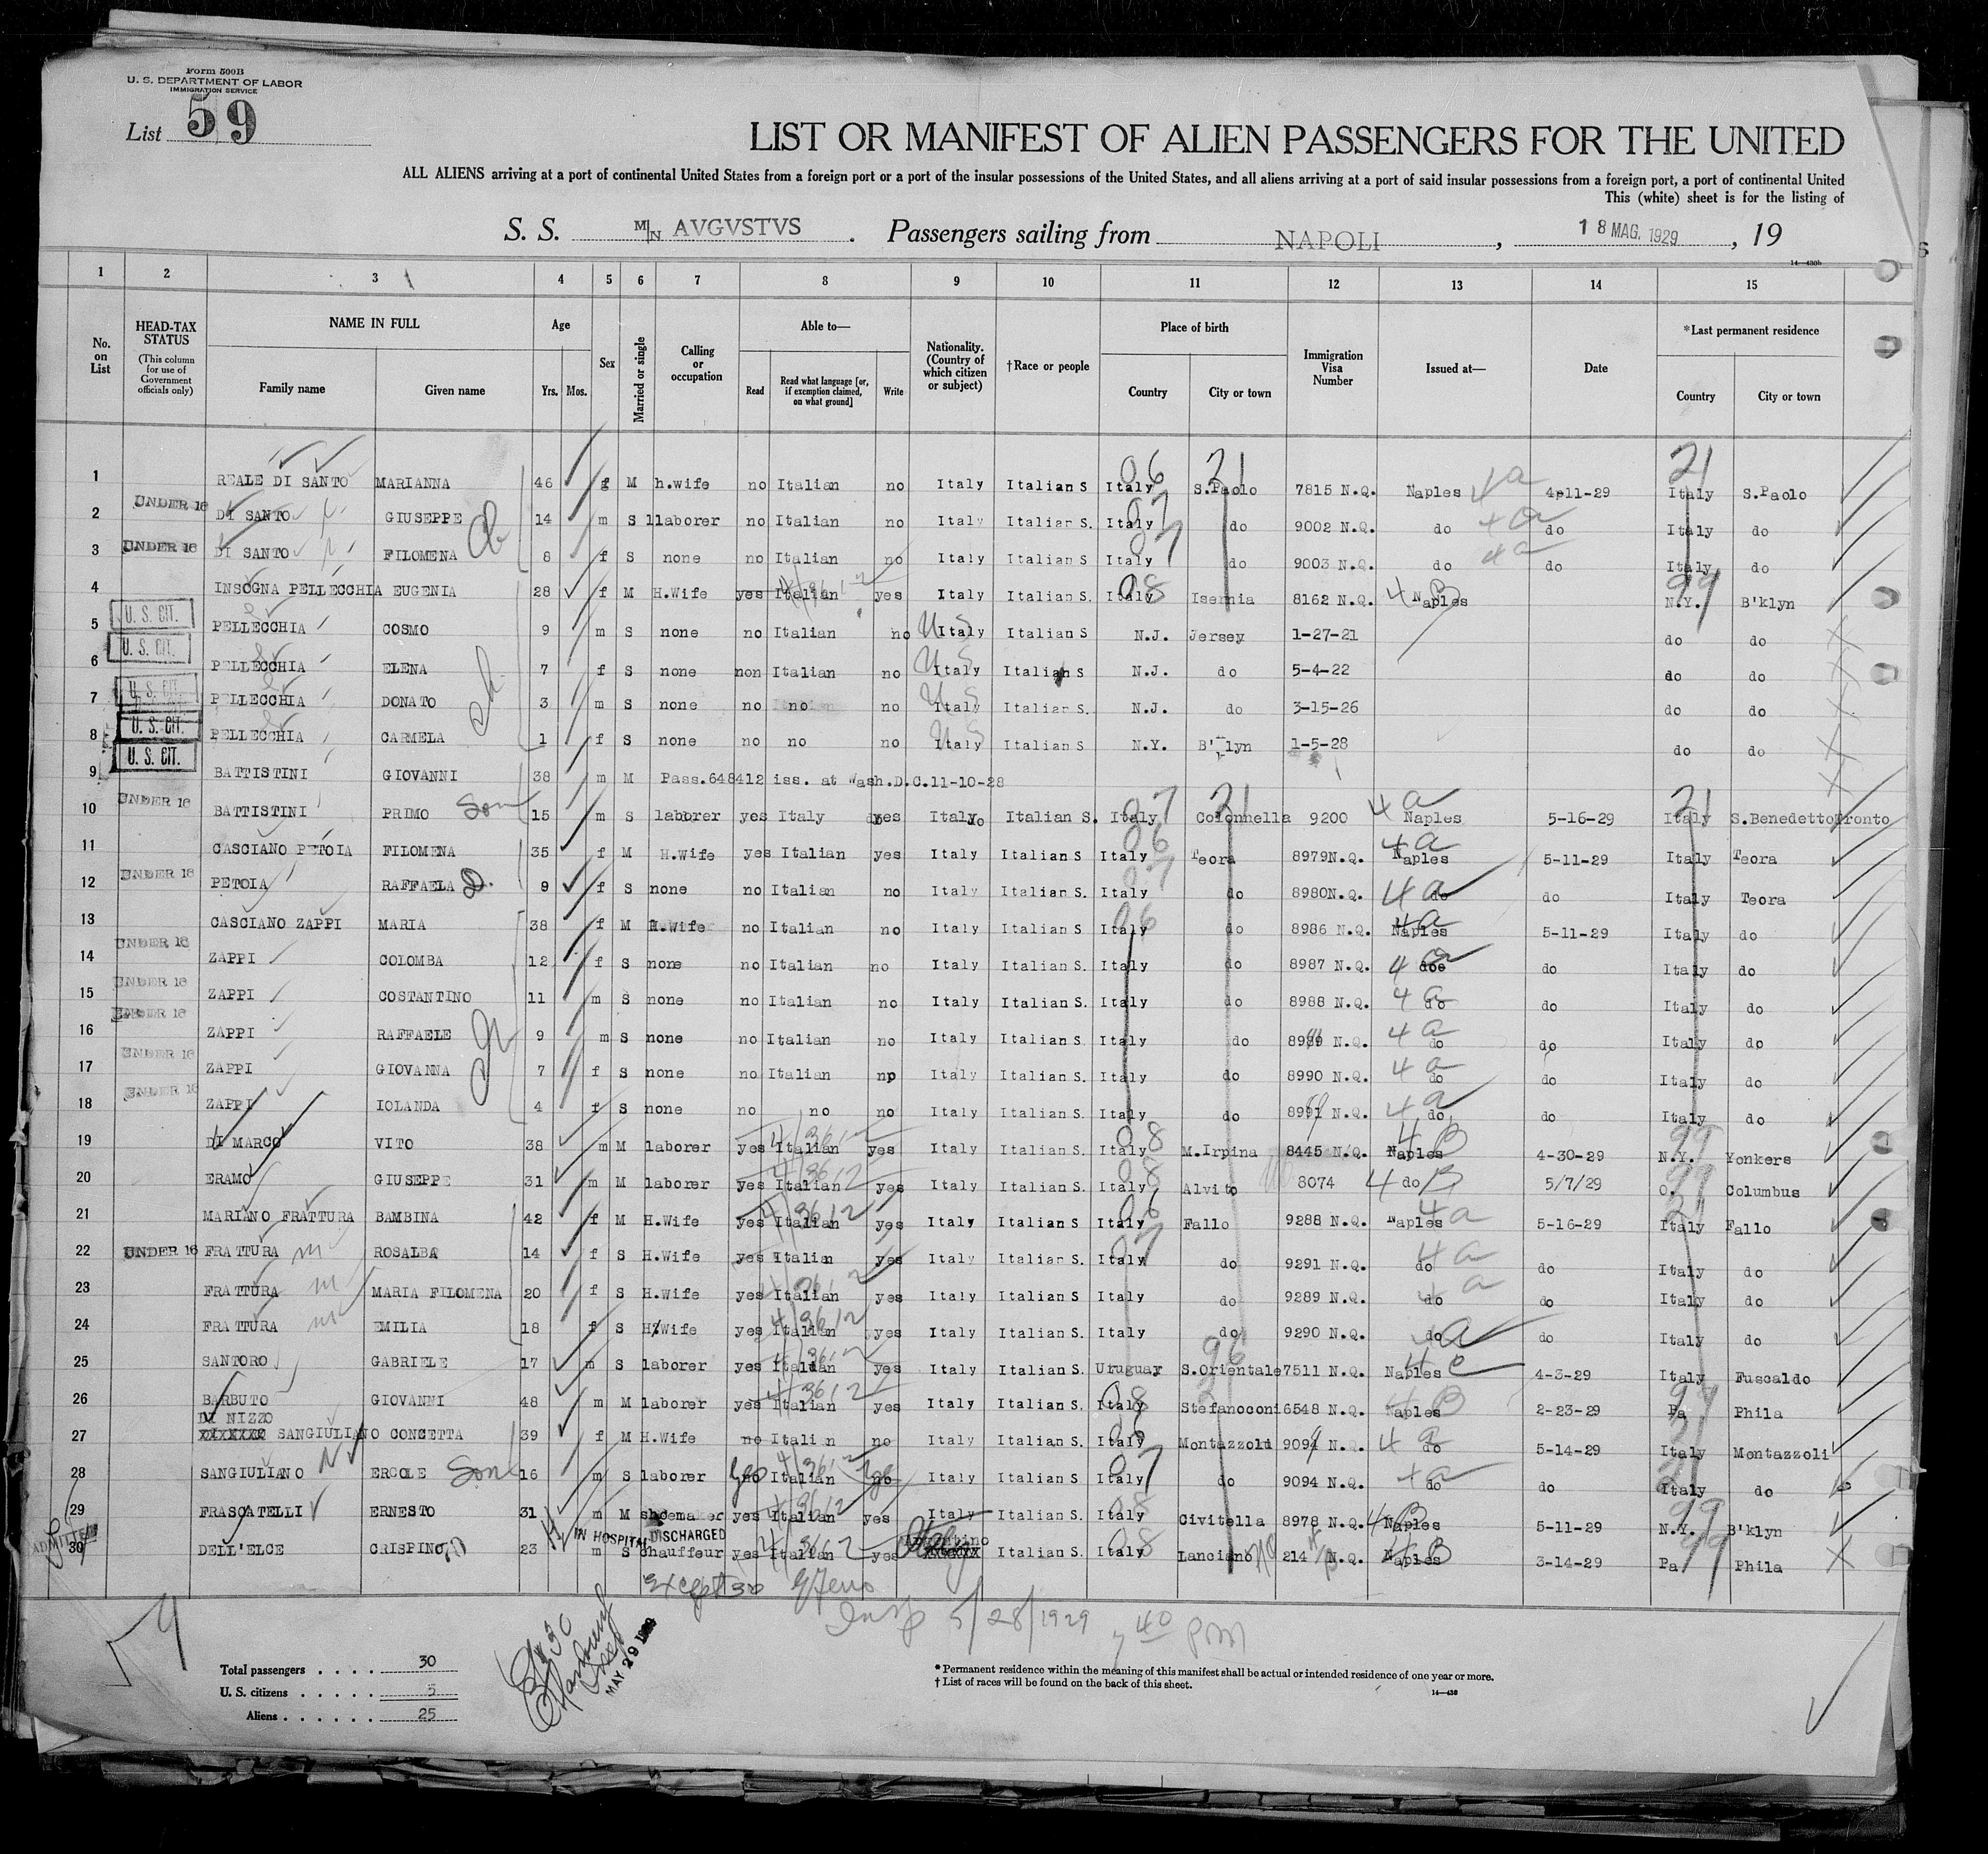 Form 500B
U. S. DEPARTMENT OF LABOR
IMMIGRATION SERVICE
List 59
LIST OR MANIFEST OF ALIEN PASSENGERS FOR THE UNITED
ALL ALIENS arriving at a port of continental United States from a foreign port or a port of the insular possessions of the United States, and all aliens arriving at a port of said insular possessions from a foreign port, a port of continental United
This (white) sheet is for the listing of
S. S. M/N AVGVSTVS. Passengers sailing from NAPOLI, 18 MAG. 1929, 19
14—430b
1 2 3 4 5 6 7 8 9 10 11 12 13 14 15
No. on List
HEAD-TAX STATUS (This column for use of Government officials only)
NAME IN FULL
Family name Given name
Age
Yrs. Mos.
Sex
Married or single
Calling or occupation
Able to—
Read Read what language [or, if exemption claimed, on what ground] Write
Nationality. (Country of which citizen or subject)
†Race or people
Place of birth
Country City or town
Immigration Visa Number
Issued at—
Date
*Last permanent residence
Country City or town
1 REALE DI SANTO MARIANNA 46 f M h.wife no Italian no Italy Italian S Italy S.Paolo 7815 N.Q. Naples 4a 4-11-29 Italy S.Paolo
2 UNDER 16 DI SANTO GIUSEPPE 14 m S llaborer no Italian no Italy Italian S. Italy do 9002 N.Q. do 4a do Italy do
3 UNDER 16 DI SANTO FILOMENA 8 f S none no Italian no Italy Italian S Italy do 9003 N.Q. do 4a do Italy do
4 INSOGNA PELLECCHIA EUGENIA 28 f M H.Wife yes Italian yes Italy Italian S. Italy 08 Isernia 8162 N.Q. 4B Naples N.Y. 99 B'klyn
5 U. S. CIT. PELLECCHIA COSMO 9 m S none no Italian no US Italy Italian S N.J. Jersey 1-27-21 do do
6 U. S. CIT. PELLECCHIA ELENA 7 f S none non Italian no US Italy Italian S N.J. do 5-4-22 do do
7 U. S. CIT. PELLECCHIA DONATO 3 m S none no no no US Italy Italian S. N.J. do 3-15-26 do do
8 U. S. CIT. PELLECCHIA CARMELA 1 f S none no no no US Italy Italian S N.Y. B'klyn 1-5-28 do do
9 U. S. CIT. BATTISTINI GIOVANNI 38 m M Pass.648412 iss. at Wash.D.C.11-10-28
10 UNDER 16 BATTISTINI PRIMO Son 15 m S laborer yes Italy yes Italy Italian S. Italy 07 21 Colonnella 9200 4a Naples 5-16-29 Italy 21 S.BenedettoTronto
11 CASCIANO PETOIA FILOMENA 35 f M H.Wife yes Italian yes Italy Italian S Italy 06 Teora 8979N.Q. 4a Naples 5-11-29 Italy Teora
12 UNDER 16 PETOIA RAFFAELA D. 9 f S none no Italian no Italy Italian S. Italy 07 do 8980N.Q. 4a do do Italy Teora
13 CASCIANO ZAPPI MARIA 38 f M H.Wife no Italian no Italy Italian S Italy 06 do 8986 N.Q. 4a Naples 5-11-29 Italy do
14 UNDER 16 ZAPPI COLOMBA 12 f S none no Italian no Italy Italian S. Italy do 8987 N.Q. 4a doe do Italy do
15 UNDER 16 ZAPPI COSTANTINO 11 m S none no Italian no Italy Italian S. Italy do 8988 N.Q. 4a do do Italy do
16 UNDER 16 ZAPPI RAFFAELE 9 m S none no Italian no Italy Italian S Italy do 8989 N.Q. 4a do do Italy do
17 UNDER 16 ZAPPI GIOVANNA 7 f S none no Italian no Italy Italian S. Italy do 8990 N.Q. 4a do do Italy do
18 UNDER 16 ZAPPI IOLANDA 4 f S none no no no Italy Italian S. Italy do 8991 N.Q. 4a do do Italy do
19 DI MARCO VITO 38 m M laborer yes Italian yes Italy Italian S. Italy 08 M.Irpina 8445 N.Q. 4B Naples 4-30-29 N.Y. 99 Yonkers
20 ERAMO GIUSEPPE 31 m M laborer yes Italian yes Italy Italian S. Italy 08 Alvito 8074 4 do B 5/7/29 O. 99 Columbus
21 MARIANO FRATTURA BAMBINA 42 f M H.Wife yes Italian yes Italy Italian S Italy 06 Fallo 9288 N.Q. Naples 4a 5-16-29 Italy 21 Fallo
22 UNDER 16 FRATTURA ROSALBA 14 f S H.Wife yes Italian yes Italy Italian S. Italy 07 do 9291 N.Q. do 4a do Italy do
23 FRATTURA MARIA FILOMENA 20 f S H.Wife yes Italian yes Italy Italian S Italy do 9289 N.Q. do 4a do Italy do
24 FRATTURA EMILIA 18 f S H.Wife yes Italian yes Italy Italian S. Italy do 9290 N.Q. do 4a do Italy do
25 SANTORO GABRIELE 17 m S laborer yes Italian yes Italy Italian S. Uruguay 96 S.Orientale 7511 N.Q. Naples 4c 4-3-29 Italy Fuscaldo
26 BARBUTO GIOVANNI 48 m M laborer yes Italian yes Italy Italian S. Italy 08 Stefanoconi 6548 N.Q. Naples 4B 2-23-29 Pa 99 Phila
DI NIZZO
27 XXXXXXX SANGIULIANO CONCETTA 39 f M H.Wife no Italian no Italy Italian S. Italy Montazzoli 909 N.Q. 4a do 5-14-29 Italy Montazzoli
28 SANGIULIANO ERCOLE Son 16 m S laborer yes no Italian yes no Italy Italian S Italy 07 do 9094 N.Q. 4a do do Italy do
29 FRASCATELLI ERNESTO 31 m M shoemaker yes Italian yes Italy Italian S. Italy 08 Civitella 8978 N.Q. 4B Naples 5-11-29 N.Y. 99 B'klyn
IN HOSPITAL DISCHARGED
ADMITTED
30 DELL'ELCE CRISPINO 23 m S chauffeur yes Italian yes Italy Italian S. Italy 08 Lanciano 214 N.Q. 4B Naples 3-14-29 Pa 99 Phila
Except 30
Insp 5/28/1929 7 40 pm
MAY 29 1929
Total passengers . . . . 30
U. S. citizens . . . . . 5
Aliens . . . . . . 25
* Permanent residence within the meaning of this manifest shall be actual or intended residence of one year or more.
† List of races will be found on the back of this sheet.
14—430